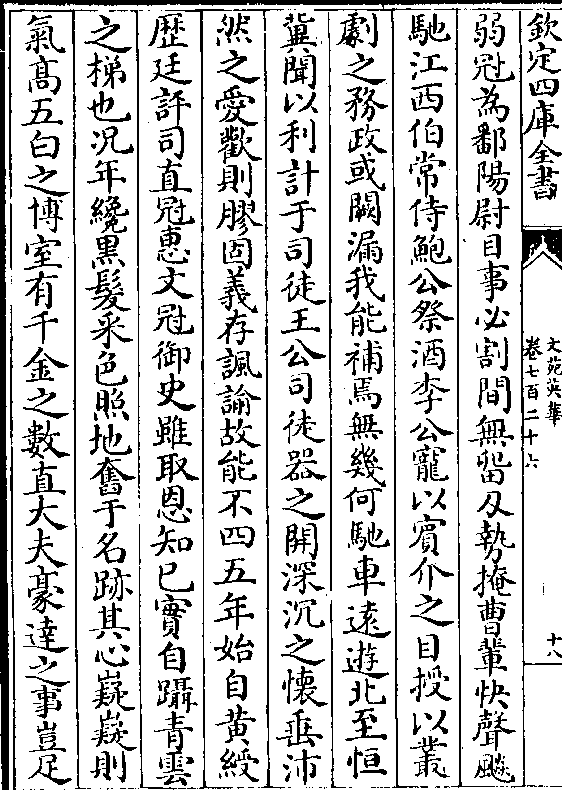 欽定四庫全書
文苑英華
卷七百二十六
十八
弱冠為鄱陽尉目事必割間無留刄勢掩曹輩快聲飈
馳江西伯常侍鮑公祭酒李公寵以賓介之目授以叢
劇之務政或闕漏我能補焉無幾何馳車遠遊北至恒
冀聞以利計于司徒王公司徒器之開深沉之懷垂沛
然之愛歡則膠固義存諷諭故能不四五年始自黄綬
歴廷評司直冠惠文冠御史雖取恩知已實自躡青雲
之梯也况年纔黒髮采色照地奮于名跡其心嶷嶷則
氣髙五白之博室有千金之數直大夫豪達之事豈足